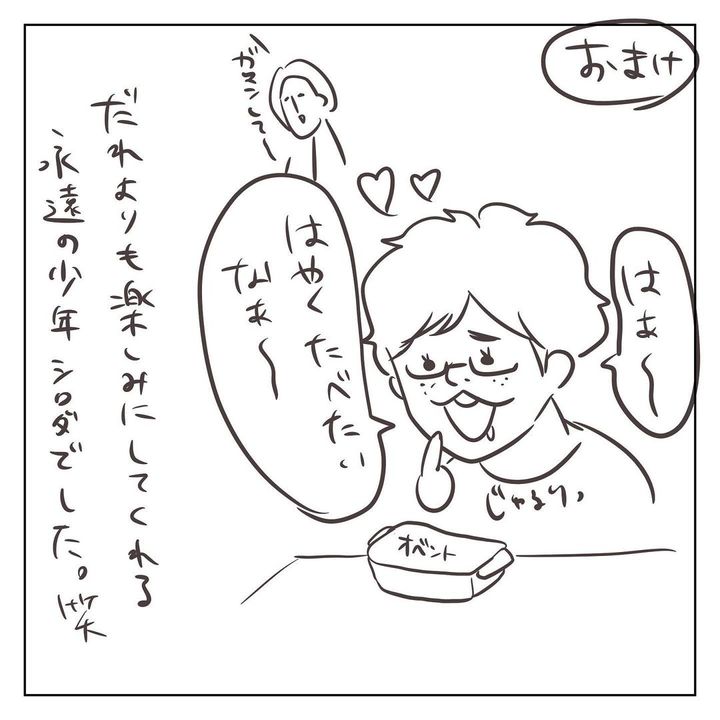 おまけ
はぁ〜
はやくたべたい
なぁ〜
ガマンしてー
じゃるり、
オベント
だれよりも楽しみにしてくれる
永遠の少年シロダでした。笑